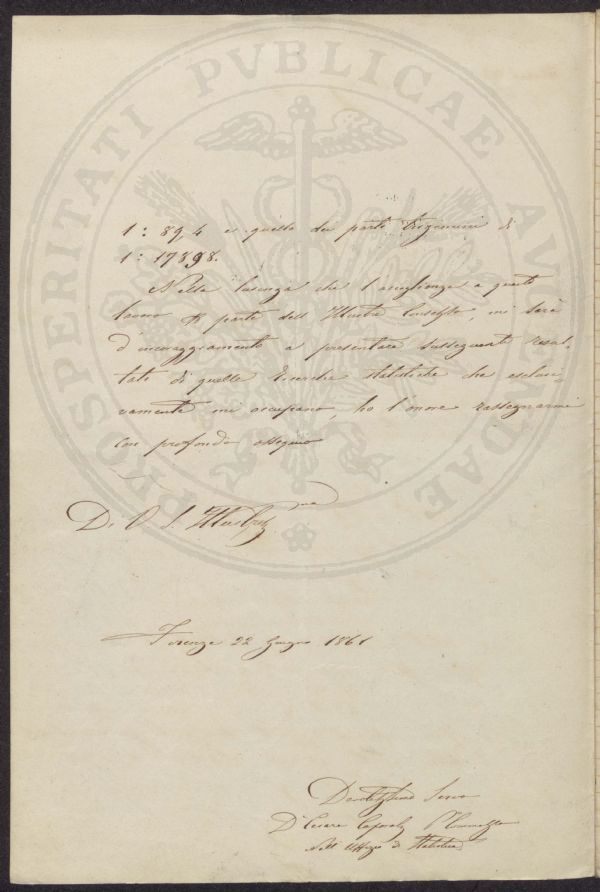 PROSPERITATI PVBLICAE AVGENDAE
1: 894 e quella dei parti trigemini di
1: 17898.
Nella lusinga che l'accoglienza a questo
lavoro per parte dell' Illustre Consesso, mi sarà
d'incoraggiamento a presentare susseguenti resul-
tati di quelle ricerche statistiche che esclusi-
vamente mi occupano, ho l'onore rassegnarmi
con profondo ossequio
Di V. S. Illustr.ma
Firenze 22 Giugno 1861
Devotissimo Servo
D. Cesare
Nell' Uffizio di Statistica